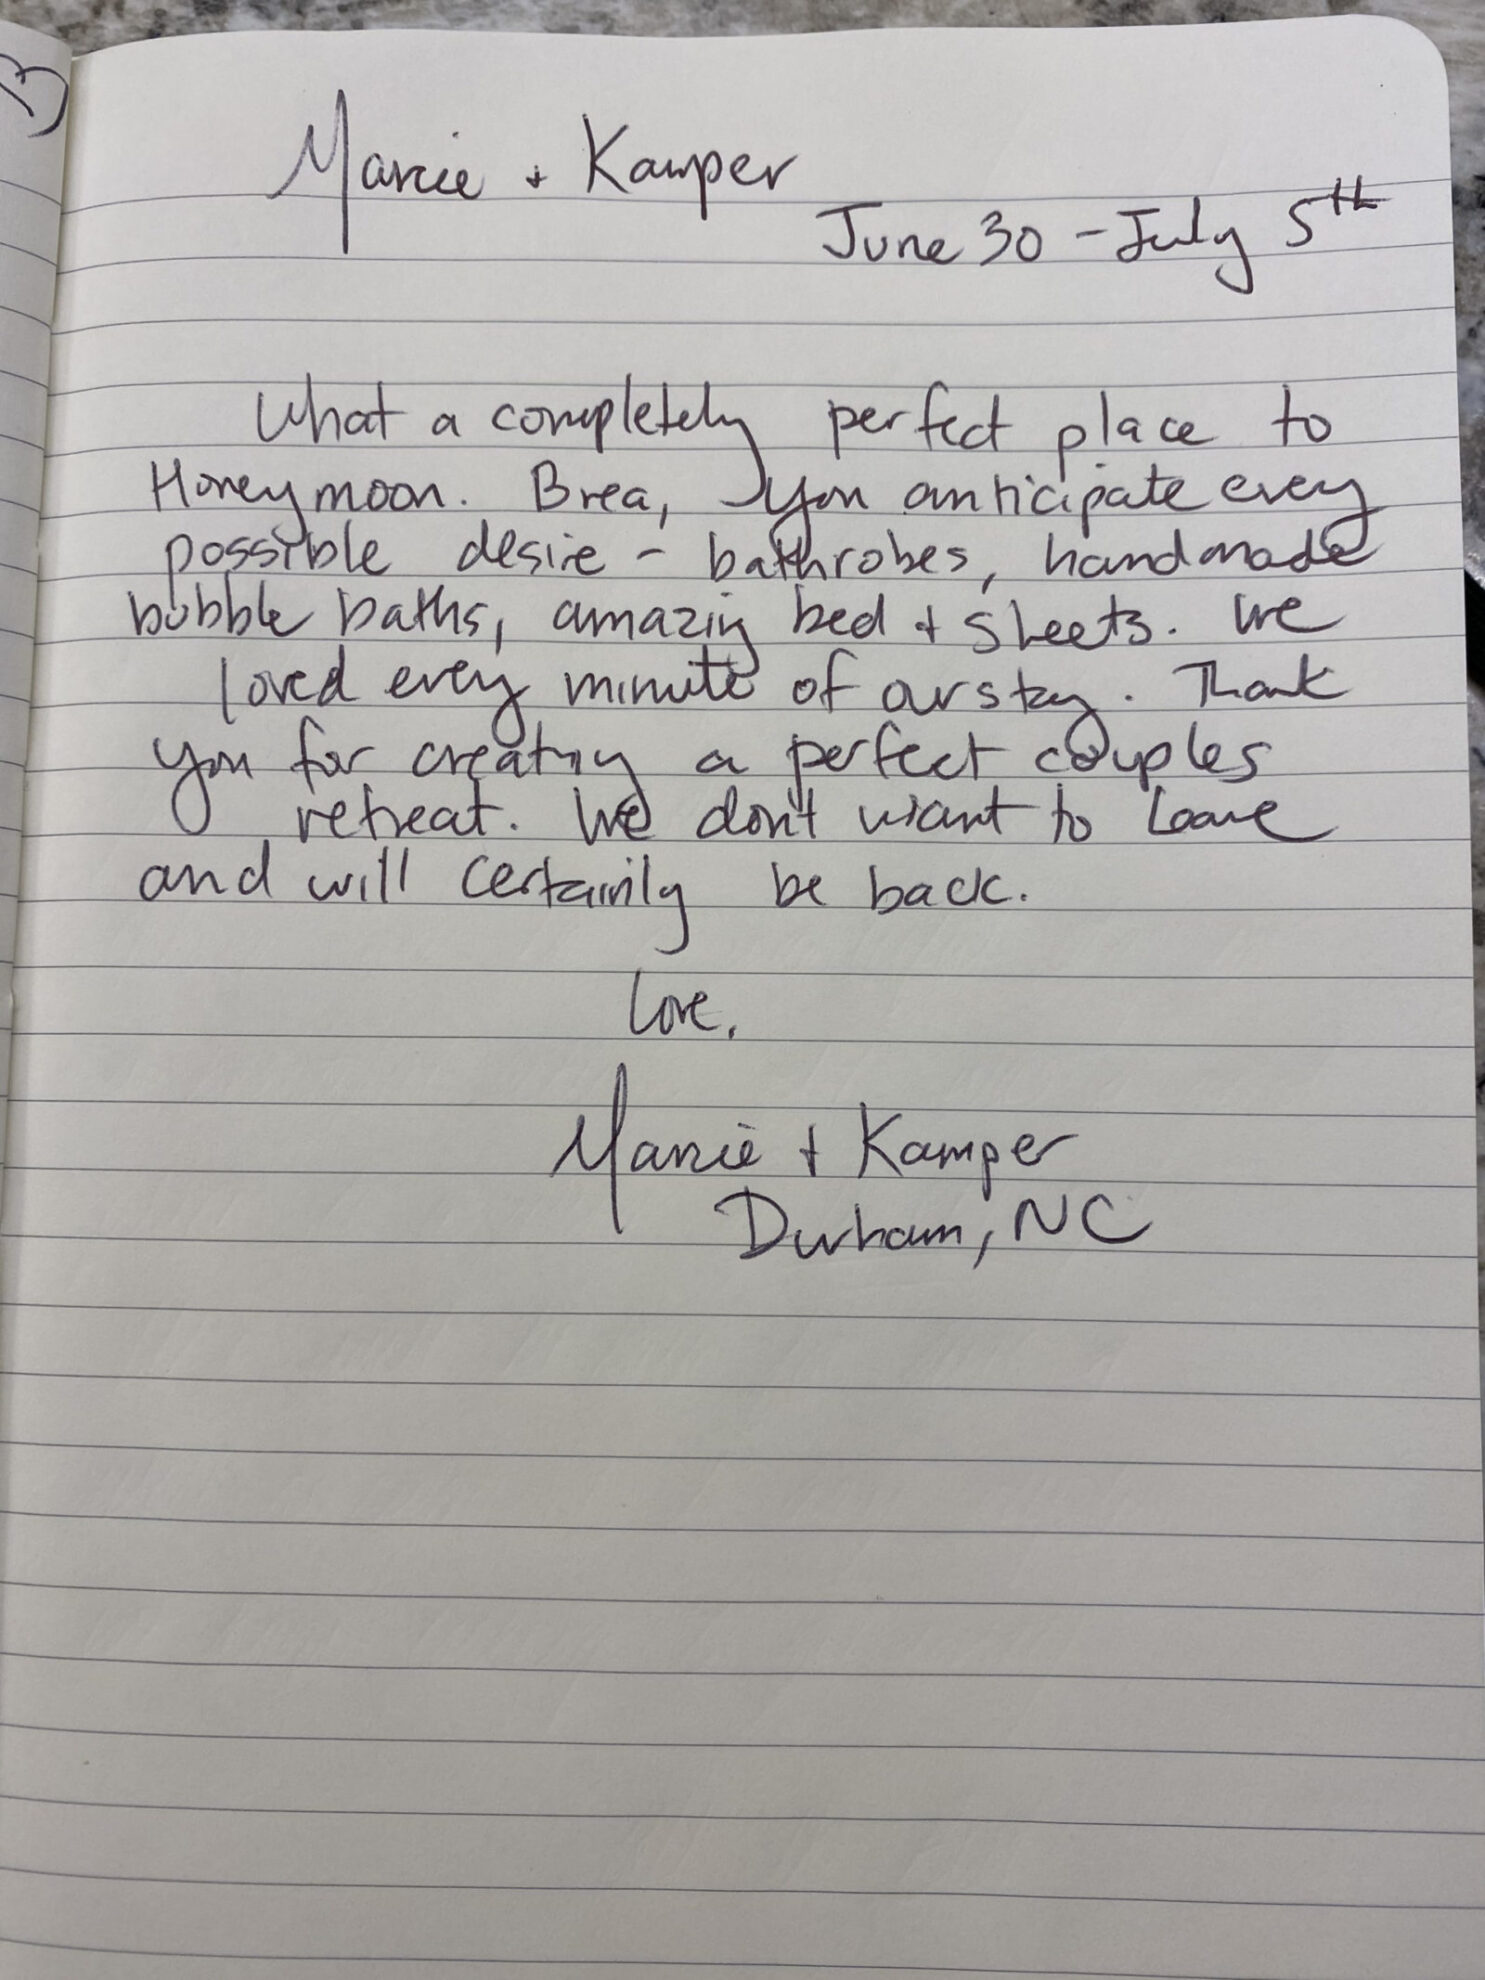 B
Marcie + Kamper
June 30 - July 5th
What a completely perfect place to
Honeymoon. Brea, you anticipate every
possible desire - bathrobes, handmade
bubble baths, amazing bed + sheets. We
loved every minute of our stay. Thank
you for creating a perfect couples
retreat. We don't want to leave
and will certainly be back.
Love,
Marcie + Kamper
Durham, NC